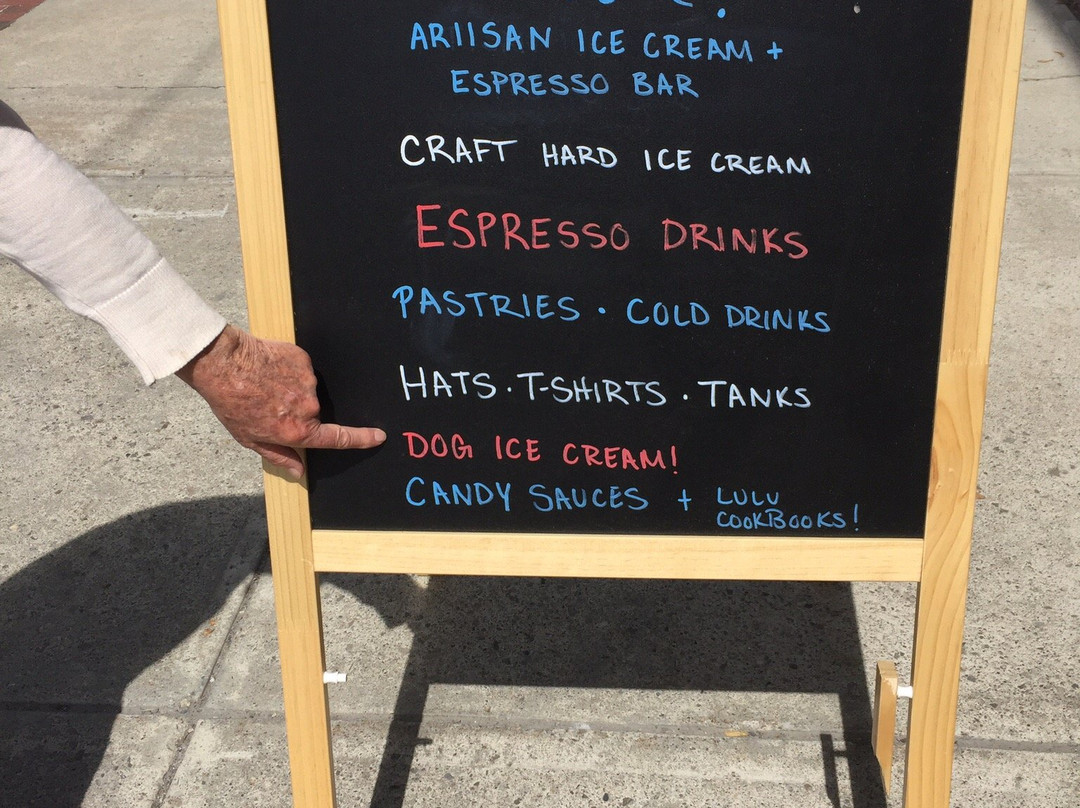 ARTISAN ICE CREAM +
ESPRESSO BAR
CRAFT HARD ICE CREAM
ESPRESSO DRINKS
PASTRIES · COLD DRINKS
HATS · T-SHIRTS · TANKS
DOG ICE CREAM!
CANDY SAUCES + LULU
COOKBOOKS!